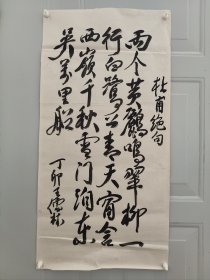 杜甫絕句
两个黄鸝鳴翠柳一
行白鷺上青天窗含
西嶺千秋雪门泊东
吴万里船
丁卯